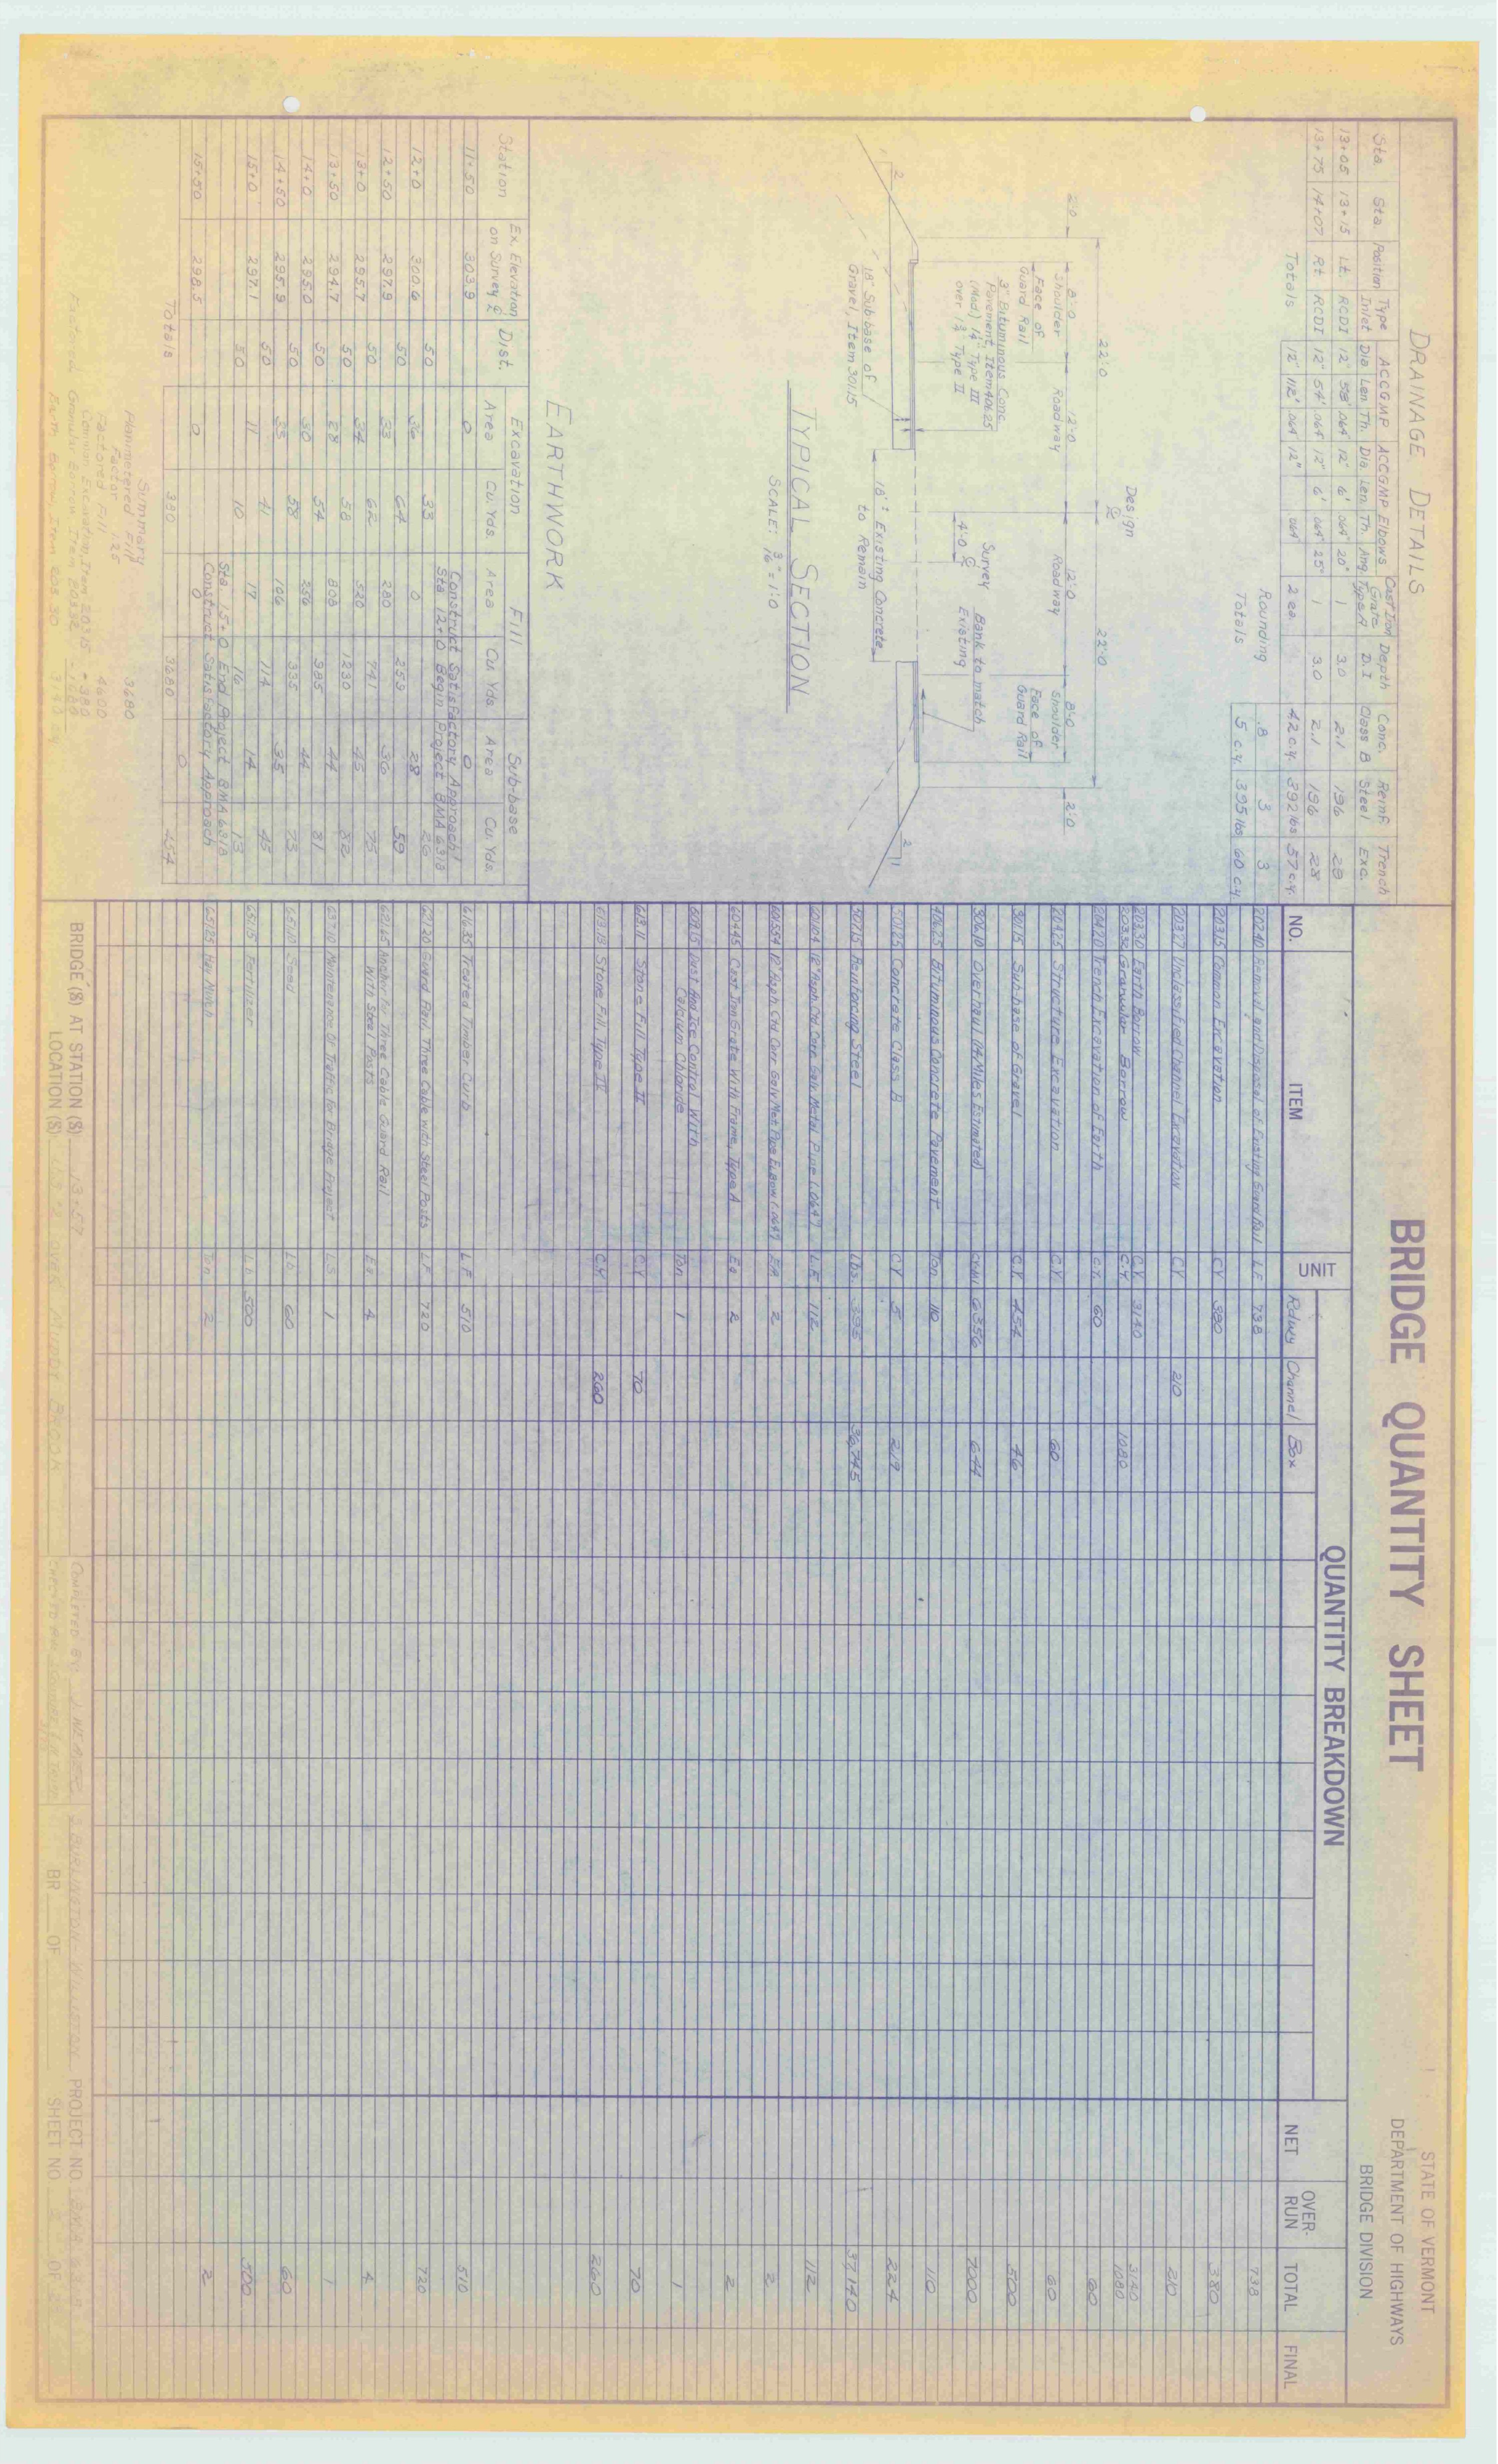 STATE OF VERMONT
DEPARTMENT OF HIGHWAYS
BRIDGE DIVISION
BRIDGE QUANTITY SHEET
DRAINAGE DETAILS
Sta. Sta. Position Type Inlet ACCGMP Dia Len. Th. ACCGMP Elbows Dia. Len. Th. Ang. Cast Iron Grate Type A Depth D.I Conc. Class B Reinf. Steel Trench Exc.
13+05 13+15 Lt. RCDI 12" 58' .064" 12" 6' .064" 20° 1 3.0 2.1 196 29
13+75 14+07 Rt RCDI 12" 54' .064 12" 6' .064" 25° 1 3.0 2.1 196 28
Totals 12" 112' .064 12" .064" 2 ea. 4.2 c.y. 392 lbs 57 c.y.
Rounding .8 3 3
Totals 5 c.y. 395 lbs 60 c.y.
Design ℄
22'-0 22'-0
2'-0 8'-0 Shoulder 12'-0 Roadway 12'-0 Roadway 8'-0 Shoulder 2'-0
Face of Guard Rail
Face of Guard Rail
4'-0 Survey ℄
3" Bituminous Conc.
Pavement Item 406.25
(Mod.) 1¼" Type III
over 1¾" Type II
Bank to match Existing
18'± Existing Concrete
to Remain
18" Sub-base of
Gravel, Item 301.15
2 1
TYPICAL SECTION
SCALE: 3/16" = 1'-0
EARTHWORK
Station Ex. Elevation on Survey ℄ Dist. Excavation Area Cu. Yds. Fill Area Cu. Yds. Sub-base Area Cu. Yds.
11+50 303.9 0 Construct Satisfactory Approach 0
Sta 12+0 Begin Project BMA 6318
50 33 26
12+0 300.6 36 0 28
50 64 259 59
12+50 297.9 33 280 36
50 62 741 75
13+0 295.7 34 520 45
50 58 1230 82
13+50 294.7 28 808 44
50 54 985 81
14+0 295.0 30 256 44
50 58 335 73
14+50 295.9 33 106 35
50 41 114 45
15+0 297.1 11 17 14
50 10 16 13
Sta 15+0 End Project BMA 6318
Construct Satisfactory Approach
15+50 298.5 0 0 0
Totals 380 3680 454
Summary
Planimetered Fill 3680
Factor 1.25
Factored Fill 4600
Common Excavation, Item 203.15 -380
Earth Borrow, Item 203.30 3140 c.y.
QUANTITY BREAKDOWN
NO. ITEM UNIT Rdwy Channel Box NET OVER-RUN TOTAL FINAL
202.40 Removal and Disposal of Existing Guard Rail L.F. 738 738
203.15 Common Excavation C.Y. 380 380
203.27 Unclassified Channel Excavation C.Y. 210 210
203.30 Earth Borrow C.Y. 3140 3140
203.32 Granular Borrow C.Y. 1080 1080
204.20 Trench Excavation of Earth C.Y. 60 60
204.25 Structure Excavation C.Y. 60 60
301.15 Sub-base of Gravel C.Y. 454 46 500
306.10 Overhaul (14 Miles Estimated) CY.Mi 6356 644 7000
406.25 Bituminous Concrete Pavement Ton 110 110
501.25 Concrete Class B C.Y. 5 219 224
507.15 Reinforcing Steel Lbs. 395 36,745 37,140
601.04 12" Asph. Ctd. Corr. Galv. Metal Pipe (.064") L.F. 112 112
12" Asph. Ctd. Corr. Galv. Met. Pipe Elbow (.064") EA 2 2
604.45 Cast Iron Grate With Frame, Type A Ea 2 2
609.15 Dust And Ice Control With
Calcium Chloride Ton 1 1
613.11 Stone Fill Type II C.Y. 70 70
613.13 Stone Fill, Type IV C.Y. 260 260
616.35 Treated Timber Curb L.F. 510 510
621.20 Guard Rail, Three Cable with Steel Posts L.F. 720 720
621.65 Anchor for Three Cable Guard Rail
With Steel Posts Ea. 4 4
Maintenance Of Traffic for Bridge Project L.S. 1 1
651.10 Seed Lb. 60 60
651.15 Fertilizer Lb. 500 500
651.25 Hay Mulch Ton 2 2
BRIDGE (S) AT STATION (S) 13+57
LOCATION (S) OVER MUDDY BROOK
S. BURLINGTON - WILLISTON PROJECT NO. BMA 6318
BR OF SHEET NO. 2 OF